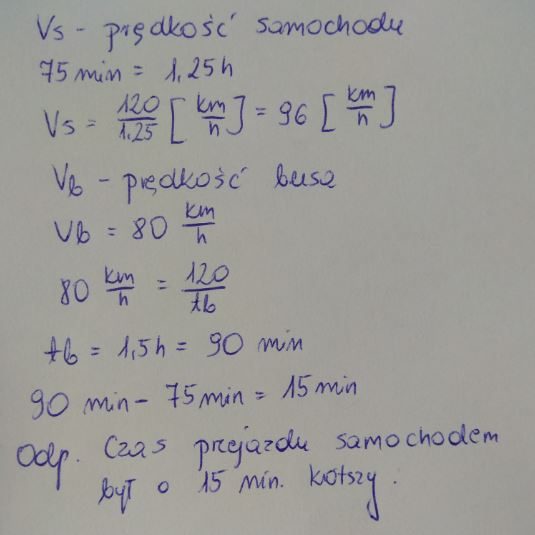 Vs - prędkość samochodu
75 min = 1,25h
Vs = 120/1,25 [km/h] = 96 [km/h]
Vb - prędkość busa
Vb = 80 km/h
80 km/h = 120/tb
tb = 1,5h = 90 min
90 min - 75 min = 15 min
Odp. Czas przejazdu samochodem
był o 15 min. krótszy.